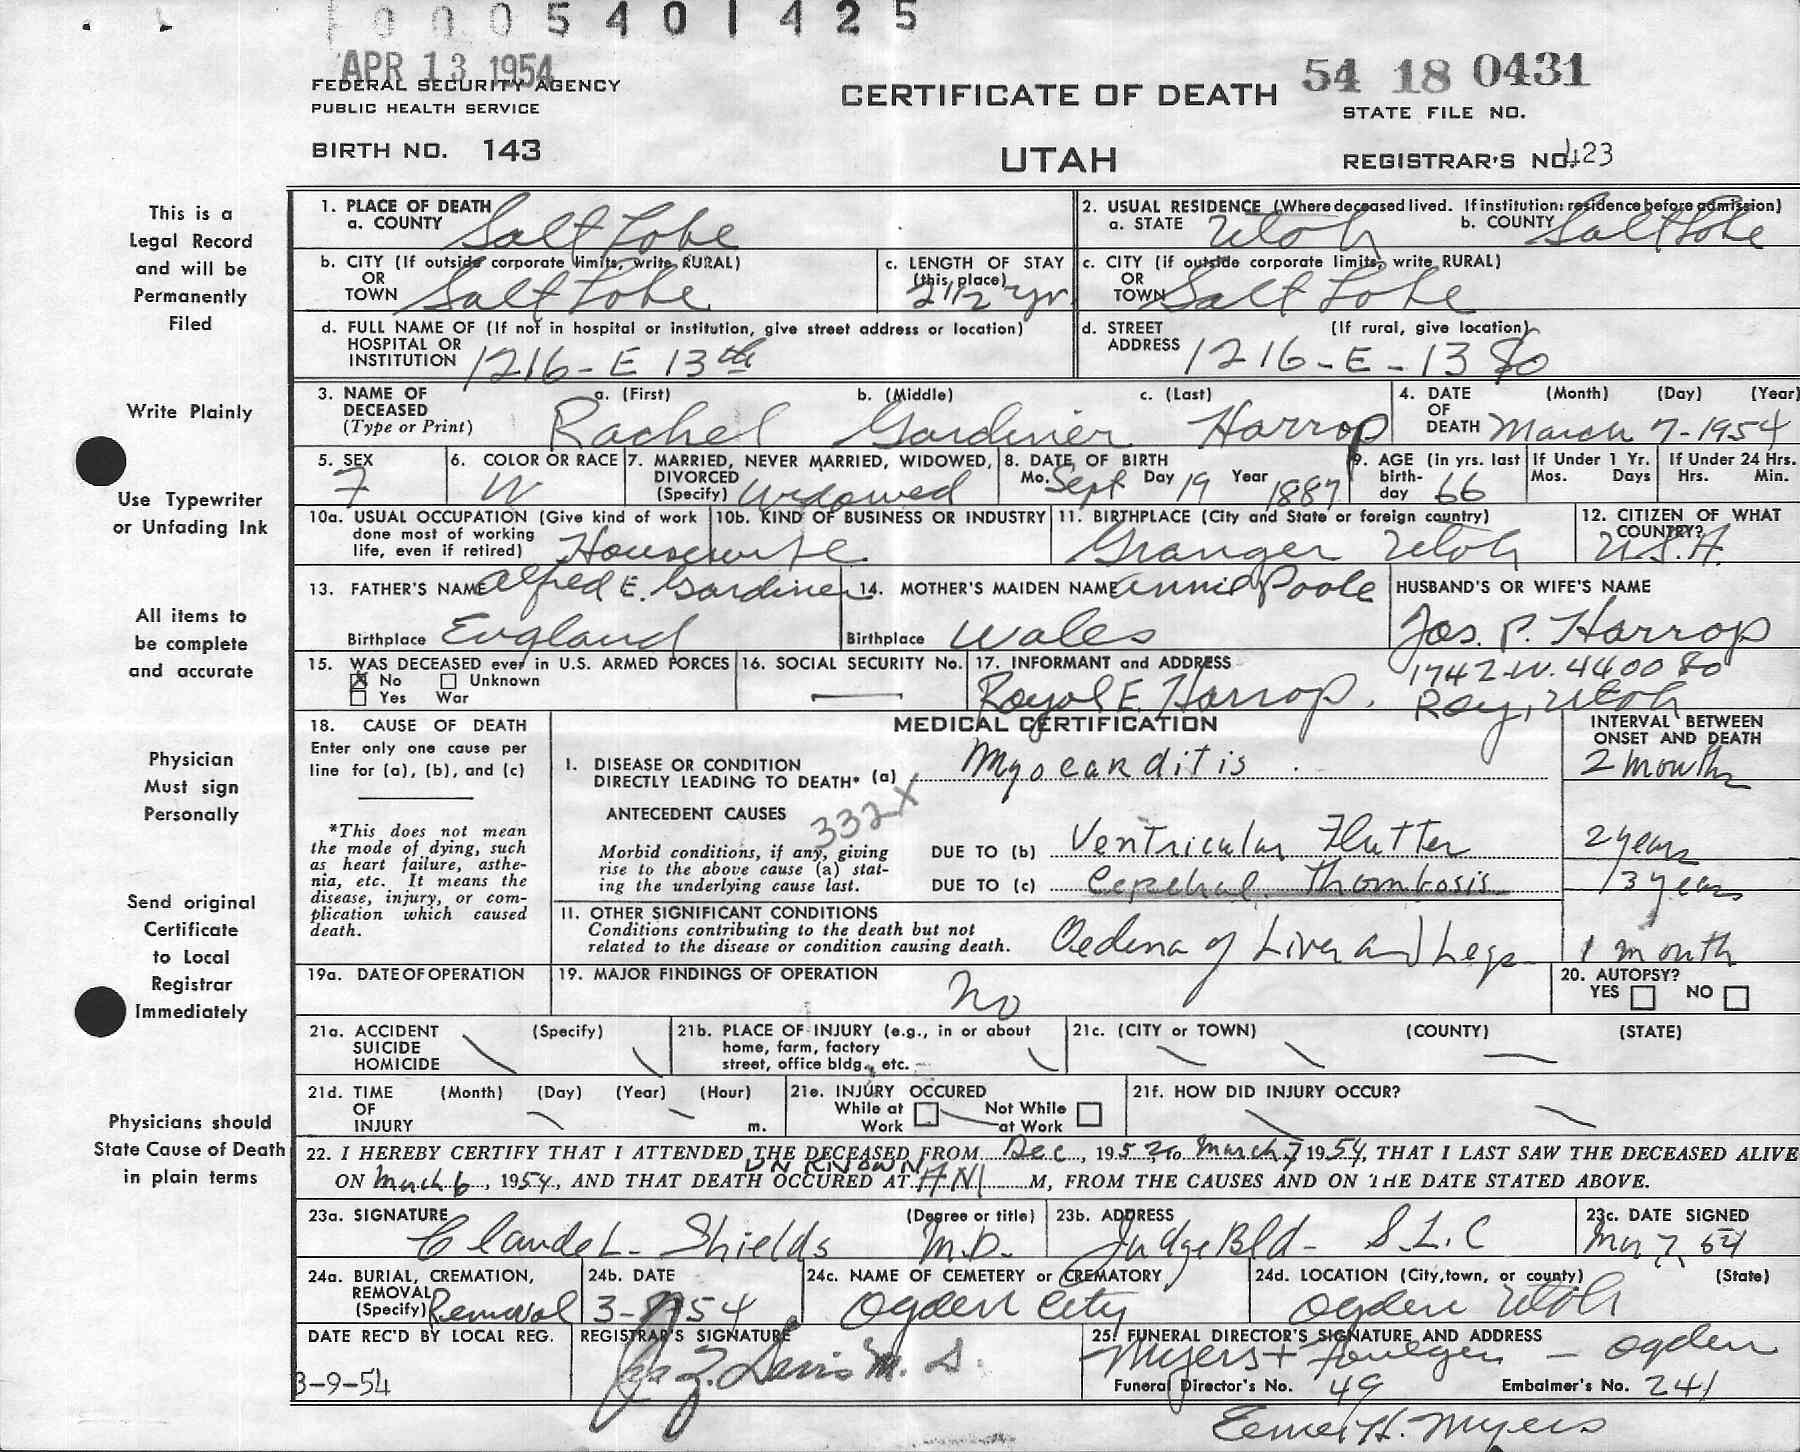 0005401425
APR 13 1954
FEDERAL SECURITY AGENCY
PUBLIC HEALTH SERVICE
BIRTH NO. 143
CERTIFICATE OF DEATH
UTAH
54 18 0431
STATE FILE NO.
REGISTRAR'S NO. 423
This is a
Legal Record
and will be
Permanently
Filed
Write Plainly
Use Typewriter
or Unfading Ink
All items to
be complete
and accurate
Physician
Must sign
Personally
Send original
Certificate
to Local
Registrar
Immediately
Physicians should
State Cause of Death
in plain terms
1. PLACE OF DEATH
a. COUNTY Salt Lake
2. USUAL RESIDENCE (Where deceased lived. If institution: residence before admission)
a. STATE Utah b. COUNTY Salt Lake
b. CITY (If outside corporate limits, write RURAL)
OR
TOWN Salt Lake
c. LENGTH OF STAY
(this place)
2 1/2 yr
c. CITY (if outside corporate limits, write RURAL)
OR
TOWN Salt Lake
d. FULL NAME OF (If not in hospital or institution, give street address or location)
HOSPITAL OR
INSTITUTION 1216 - E 13th
d. STREET (If rural, give location)
ADDRESS 1216 - E - 13 So
3. NAME OF DECEASED
(Type or Print)
a. (First) b. (Middle) c. (Last)
Rachel Gardiner Harrop
4. DATE OF DEATH (Month) (Day) (Year)
March 7 - 1954
5. SEX
F
6. COLOR OR RACE
W
7. MARRIED, NEVER MARRIED, WIDOWED,
DIVORCED
(Specify) Widowed
8. DATE OF BIRTH
Mo. Sept Day 19 Year 1887
9. AGE (in yrs. last
birth-
day 66
If Under 1 Yr.
Mos. Days
If Under 24 Hrs.
Hrs. Min.
10a. USUAL OCCUPATION (Give kind of work
done most of working
life, even if retired) Housewife
10b. KIND OF BUSINESS OR INDUSTRY
11. BIRTHPLACE (City and State or foreign country)
Granger Utah
12. CITIZEN OF WHAT
COUNTRY?
U.S.A.
13. FATHER'S NAME Alfred E. Gardiner
Birthplace England
14. MOTHER'S MAIDEN NAME Annie Poole
Birthplace Wales
HUSBAND'S OR WIFE'S NAME
Jos. P. Harrop
15. WAS DECEASED ever in U.S. ARMED FORCES
No Unknown
Yes War
16. SOCIAL SECURITY No.
17. INFORMANT and ADDRESS
Royal E. Harrop. 1742 - W. 4400 So
Roy, Utah
18. CAUSE OF DEATH
Enter only one cause per
line for (a), (b), and (c)
*This does not mean
the mode of dying, such
as heart failure, asthe-
nia, etc. It means the
disease, injury, or com-
plication which caused
death.
MEDICAL CERTIFICATION
INTERVAL BETWEEN
ONSET AND DEATH
I. DISEASE OR CONDITION
DIRECTLY LEADING TO DEATH* (a) Myocarditis
2 months
ANTECEDENT CAUSES
332X
Morbid conditions, if any, giving
rise to the above cause (a) stat-
ing the underlying cause last.
DUE TO (b) Ventricular Flutter
2 years
DUE TO (c) Cerebral Thombosis
3 years
II. OTHER SIGNIFICANT CONDITIONS
Conditions contributing to the death but not
related to the disease or condition causing death.
Oedema of Liver and Legs
1 month
19a. DATE OF OPERATION
19. MAJOR FINDINGS OF OPERATION
No
20. AUTOPSY?
YES NO
21a. ACCIDENT (Specify)
SUICIDE
HOMICIDE
21b. PLACE OF INJURY (e.g., in or about
home, farm, factory
street, office bldg., etc.
21c. (CITY or TOWN) (COUNTY) (STATE)
21d. TIME (Month) (Day) (Year) (Hour)
OF
INJURY m.
21e. INJURY OCCURED
While at Work Not While at Work
21f. HOW DID INJURY OCCUR?
22. I HEREBY CERTIFY THAT I ATTENDED THE DECEASED FROM Dec, 1952 to March 7 1954, THAT I LAST SAW THE DECEASED ALIVE
UNKNOWN
ON March 6, 1954, AND THAT DEATH OCCURED AT A.M. M, FROM THE CAUSES AND ON THE DATE STATED ABOVE.
23a. SIGNATURE (Degree or title)
Claude L. Shields M.D.
23b. ADDRESS
Judge Bld - S.L.C
23c. DATE SIGNED
Mar 7, 54
24a. BURIAL, CREMATION,
REMOVAL
(Specify) Removal
24b. DATE
3-9-54
24c. NAME OF CEMETERY or CREMATORY
Ogden City
24d. LOCATION (City, town, or county) (State)
Ogden Utah
DATE REC'D BY LOCAL REG.
3-9-54
REGISTRAR'S SIGNATURE
25. FUNERAL DIRECTOR'S SIGNATURE AND ADDRESS
Myers + Foulger - Ogden
Funeral Director's No. 49 Embalmer's No. 241
H. Myers